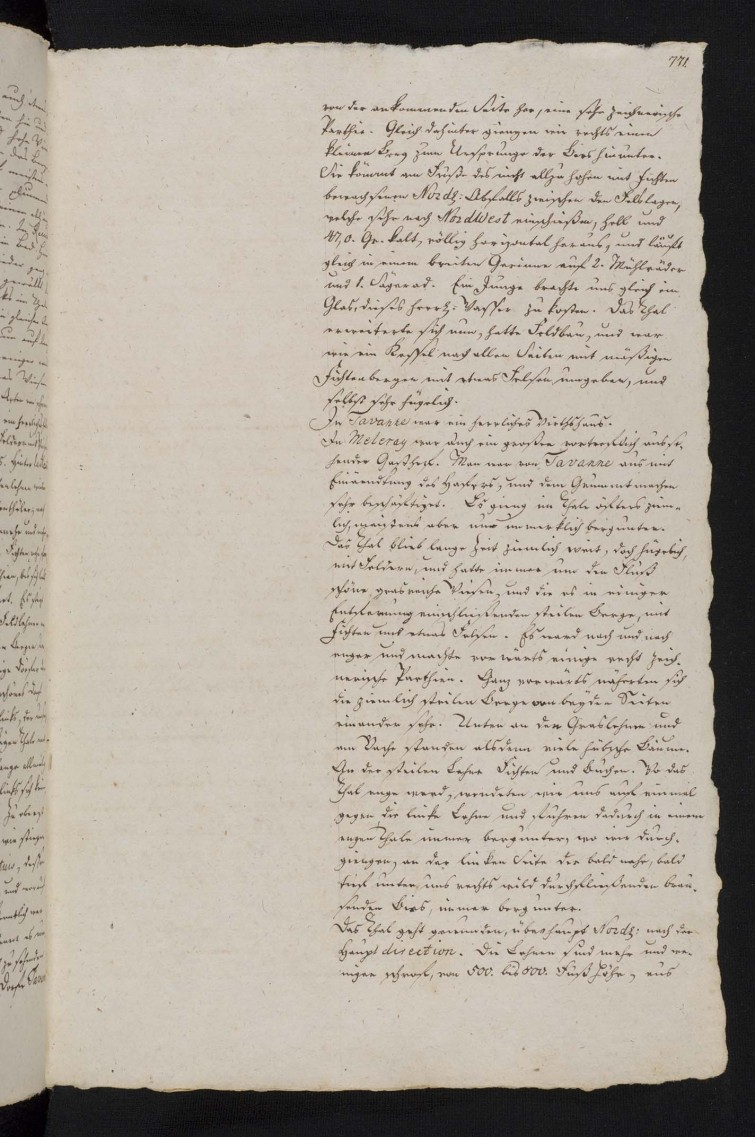 771
von der ankommenden Seite her, eine sehr zeichnerische
Parthie. Gleich dahinter giengen wir rechts einen
kleinen Berg zum Ursprunge der Birs hinunter.
Sie kömmt am Fuße des nicht allzu hohen mit Fichten
bewachsenen Nördl: Abfalls zwischen den Felslagen,
welche sehr nach NordWest einschießen, hell und
47,0. Gr. kalt, völlig horizontal heraus, und läuft
gleich in einem breiten Gerinne auf 2. Mühlräder
und 1. Sägerad. Ein Junge brachte uns gleich ein
Glas, dieses herrl: Wasser zu kosten. Das Thal
erweiterte sich nun, hatte Feldbau, und war
wie ein Kessel nach allen Seiten mit mäßigen
Fichtenbergen mit etwas Felsen umgeben, und
selbst sehr hügelich.
In Tavanne war ein herrliches Wirthshaus.
In Meleray war auch ein großer vortreflich ausse-
hender Gasthof. Man war von Tavanne aus mit
Einerndtung des Hafers, und dem Grummt machen
sehr beschäftiget. Es gieng im Thale öfters ziem-
lich, meistens aber nur unmerklich bergunter.
Das Thal blieb lange Zeit ziemlich weit, doch hügelich,
mit Feldern, und hatte immer um den Fluß
schöne grasreiche Wiesen, und die es in einiger
Entfernung einschließenden steilen Berge, mit
Fichten und etwas Felsen. Es ward nach und nach
enger und machte vorwärts einige recht zeich-
nerische Parthien. Ganz vorwärts näherten sich
die ziemlich steilen Berge von beyden Seiten
einander sehr. Unten an den Graslehnen und
am Bache standen alsdenn viele hübsche Bäume.
An der steilen Lehne Fichten und Buchen. Wo das
Thal enge ward, wendeten wir uns auf einmal
gegen die linke Lehne und fuhren dadurch in einem
engen Thale immer bergunter, wo wir durch-
giengen, an der linken Seite der bald nahe, bald
tief unter uns rechts wild durchfließenden brau-
senden Birs, immer bergunter.
Das Thal geht gewunden, überhaupt Nördl: nach der
Hauptdirection. Die Lehnen sind mehr und we-
niger schrof, von 500. bis 800. Fuß Höhe, aus